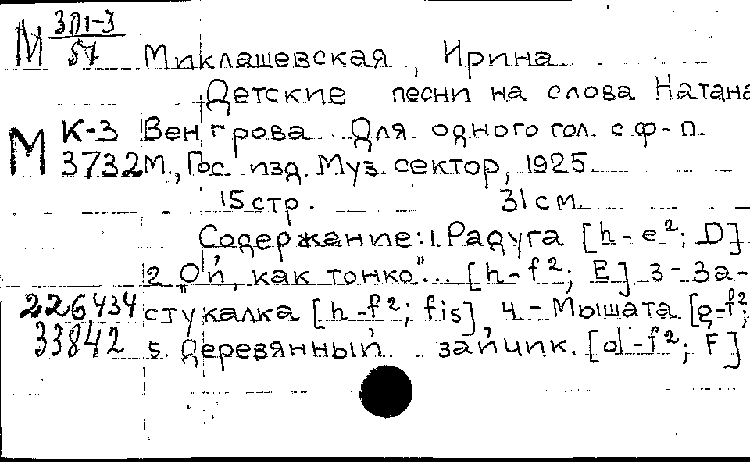 М 3П1-3
57
Миклашевская, Ирина
Детские песни на слова Натана
М К-3 Венгрова. Для одного гол. с ф-п.
3732 М., Гос. изд. Муз. сектор, 1925
15 стр. 31 см.
Содержание: 1. Радуга [h-e²; D]
2 „Ой, как тонко"... [h-f²; E] 3 - За-
226434 стукалка [h-f²; fis], 4. - Мышата [g-f²;
33842 5. Деревянный зайчик. [d-f²; F]